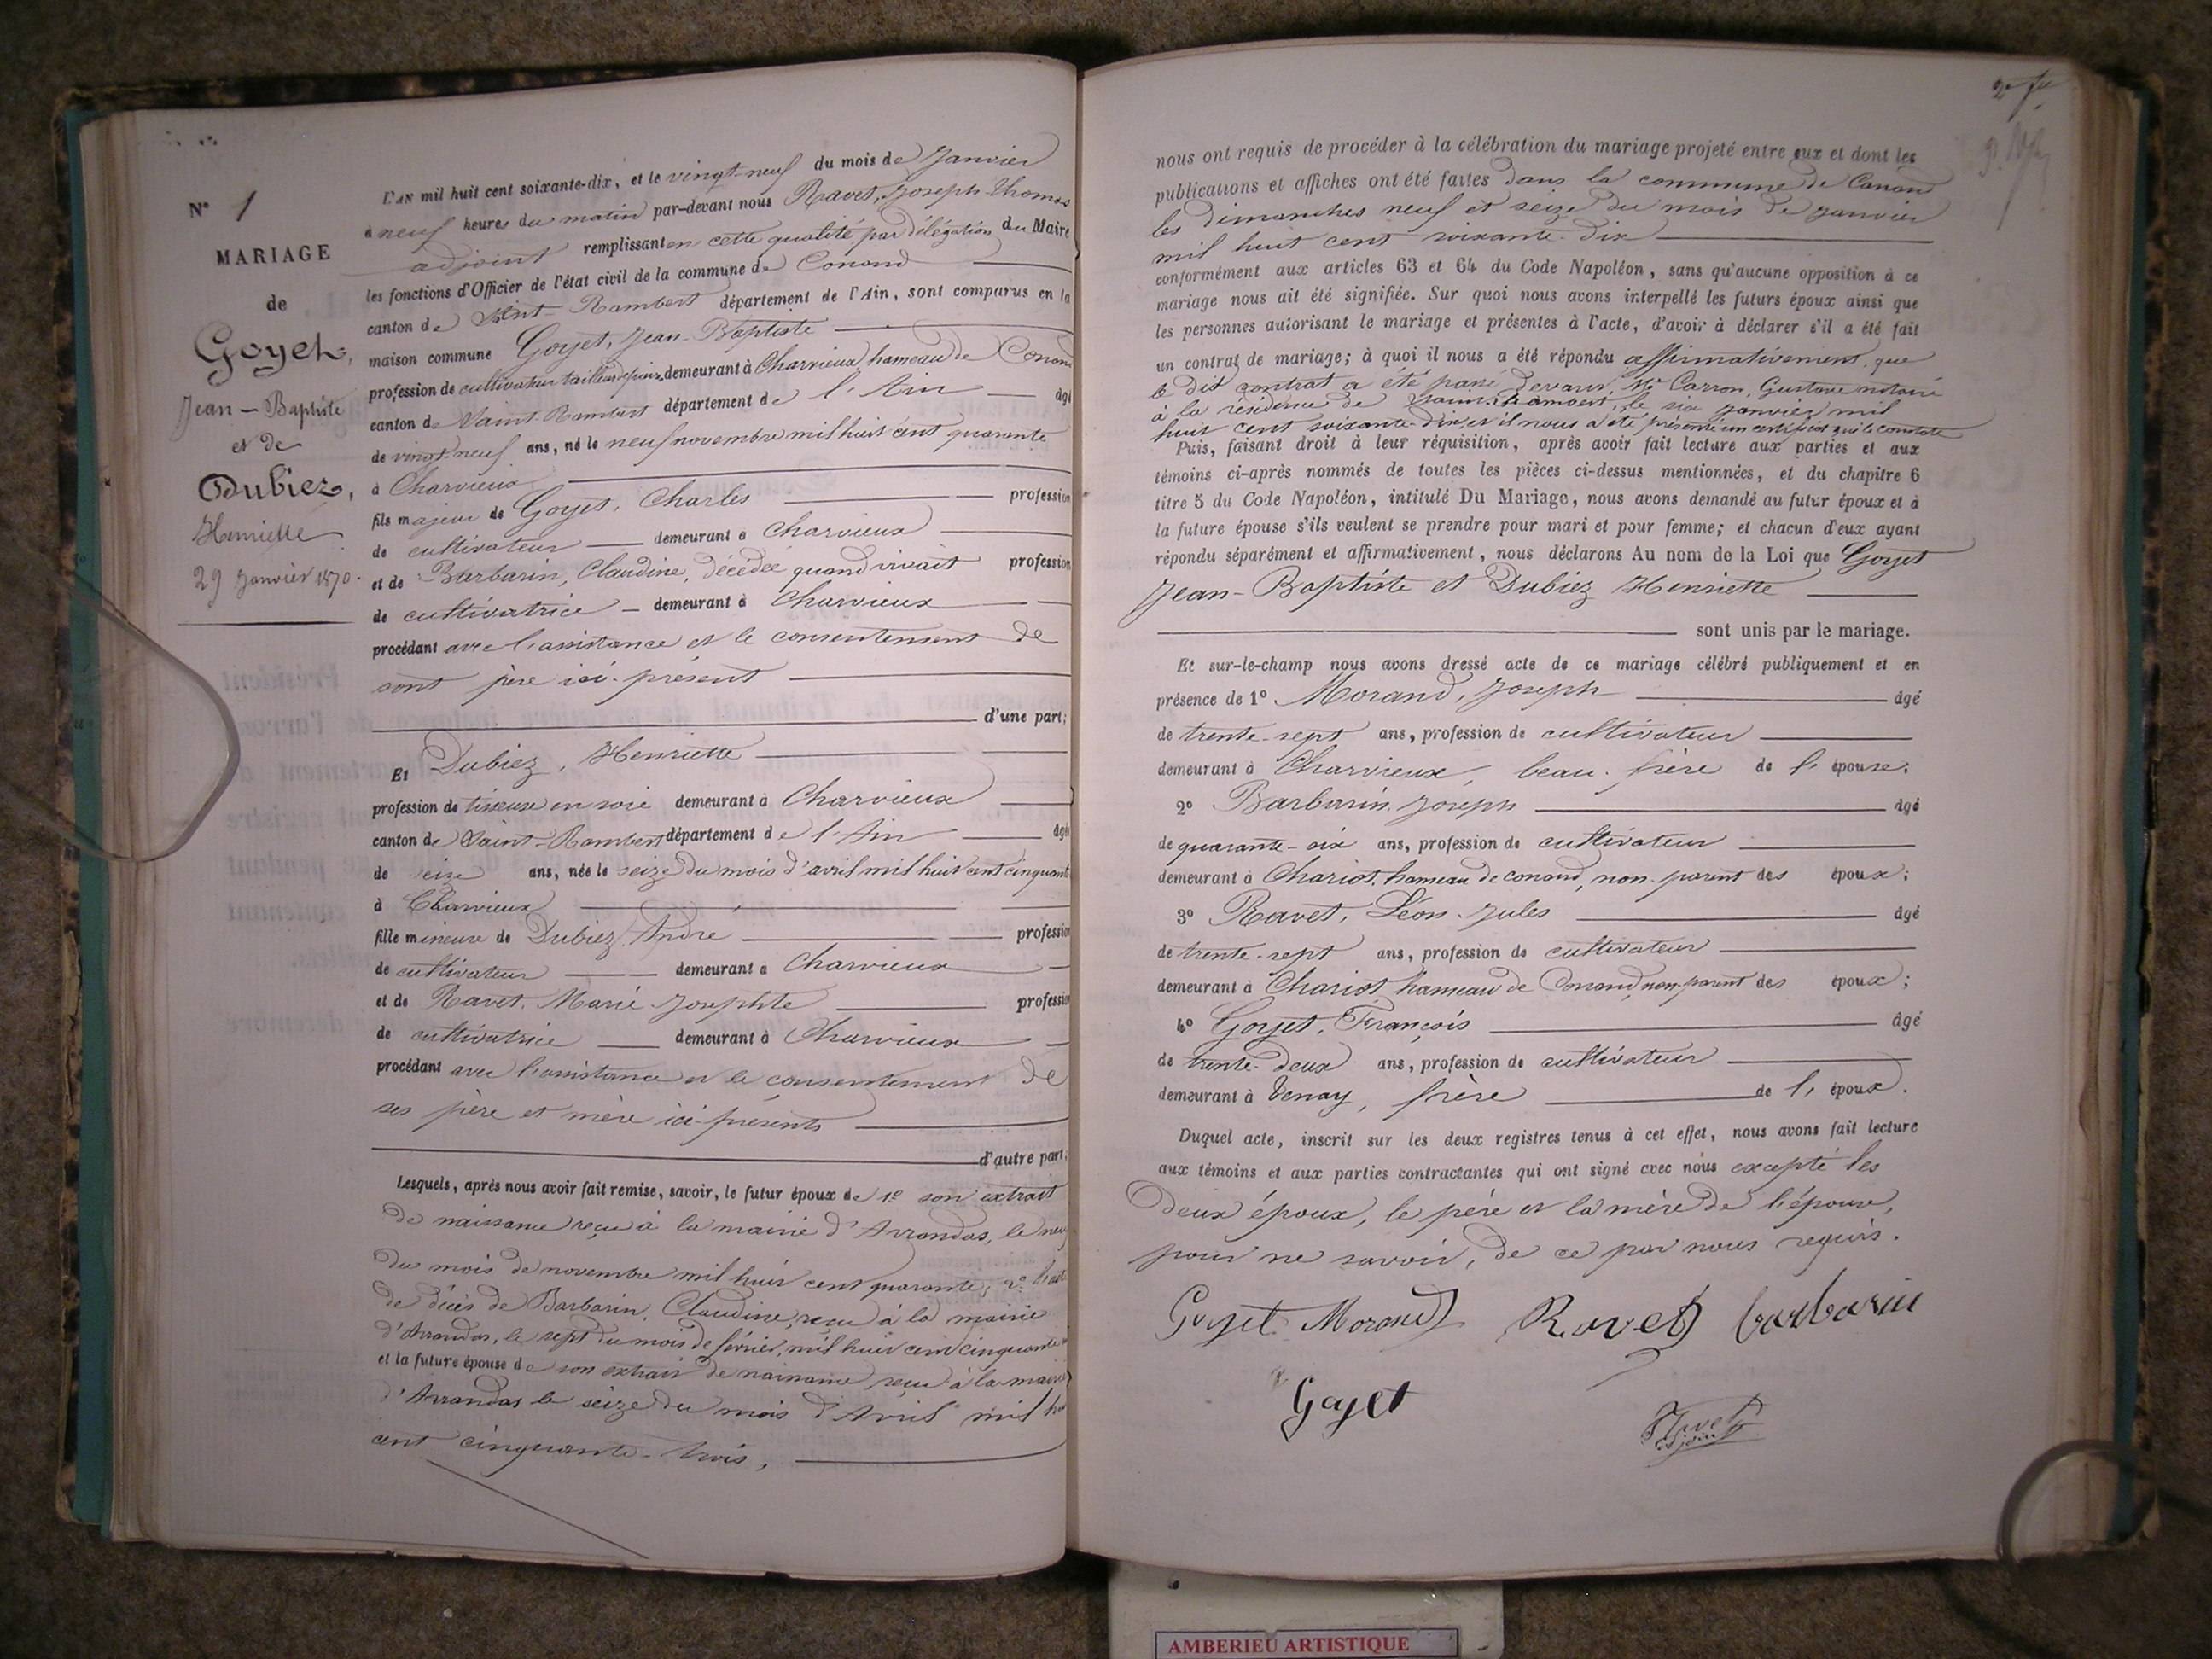 N° 1
MARIAGE
de
Goyet,
Jean-Baptiste
et de
Dubiez,
Henriette
29 Janvier 1870.
L'AN mil huit cent soixante-dix, et le vingt-neuf du mois de Janvier
à neuf heures du matin par-devant nous Ravet, Joseph-Thomas
adjoint remplissant en cette qualité par délégation du Maire
les fonctions d'Officier de l'état civil de la commune de Conand
canton de Saint-Rambert département de l'Ain, sont comparus en la
maison commune Goyet, Jean-Baptiste
profession de cultivateur tailleur de pierre demeurant à Charvieux, hameau de Conand
canton de Saint-Rambert département de l'Ain âgé
de vingt-neuf ans, né le neuf novembre mil huit cent quarante
à Charvieux
fils majeur de Goyet, Charles profession
de cultivateur demeurant à Charvieux
et de Barbarin, Claudine, décédée quand vivait profession
de cultivatrice demeurant à Charvieux
procédant avec l'assistance et le consentement de
sont père ici-présent
d'une part;
Et Dubiez, Henriette
profession de tisseuse en soie demeurant à Charvieux
canton de Saint-Rambert département de l'Ain âgé
de seize ans, née le seize du mois d'avril mil huit cent cinquante
à Charvieux
fille mineure de Dubiez, André profession
de cultivateur demeurant à Charvieux
et de Ravet, Marie-Josephte profession
de cultivatrice demeurant à Charvieux
procédant avec l'assistance et le consentement de
ses père et mère ici-présents
d'autre part;
Lesquels, après nous avoir fait remise, savoir, le futur époux de 1° son extrait
de naissance reçu à la mairie d'Arrandas, le neuf
du mois de novembre mil huit cent quarante; 2° l'acte
de décès de Barbarin, Claudine, reçu à la mairie
d'Arrandas, le sept du mois de février, mil huit cent cinquante
et la future épouse de son extrait de naissance, reçu à la mairie
d'Arrandas le seize du mois d'Avril mil huit
cent cinquante-trois,
2e
nous ont requis de procéder à la célébration du mariage projeté entre eux et dont les
publications et affiches ont été faites dans la commune de Conand
les dimanches neuf et seize du mois de janvier
mil huit cent soixante-dix
conformément aux articles 63 et 64 du Code Napoléon, sans qu'aucune opposition à ce
mariage nous ait été signifiée. Sur quoi nous avons interpellé les futurs époux ainsi que
les personnes autorisant le mariage et présentes à l'acte, d'avoir à déclarer s'il a été fait
un contrat de mariage; à quoi il nous a été répondu affirmativement, que
le dit contrat a été passé devant Me Carron, Gustave notaire
à la résidence de Saint-Rambert, le six janvier mil
huit cent soixante-dix, et il nous a été présenté un certificat qui le constate
Puis, faisant droit à leur réquisition, après avoir fait lecture aux parties et aux
témoins ci-après nommés de toutes les pièces ci-dessus mentionnées, et du chapitre 6
titre 5 du Code Napoléon, intitulé Du Mariage, nous avons demandé au futur époux et à
la future épouse s'ils veulent se prendre pour mari et pour femme; et chacun d'eux ayant
répondu séparément et affirmativement, nous déclarons Au nom de la Loi que Goyet
Jean-Baptiste et Dubiez Henriette
sont unis par le mariage.
Et sur-le-champ nous avons dressé acte de ce mariage célébré publiquement et en
présence de 1° Morand, Joseph âgé
de trente-sept ans, profession de cultivateur
demeurant à Charvieux, beau-frère de l'épouse;
2° Barbarin, Joseph âgé
de quarante-six ans, profession de cultivateur
demeurant à Chariot, hameau de conand, non-parent des époux;
3° Ravet, Léon-Jules âgé
de trente-sept ans, profession de cultivateur
demeurant à Chariot, hameau de Conand, non-parent des époux;
4° Goyet, François âgé
de trente-deux ans, profession de cultivateur
demeurant à Tenay, frère de l'époux.
Duquel acte, inscrit sur les deux registres tenus à cet effet, nous avons fait lecture
aux témoins et aux parties contractantes qui ont signé avec nous excepté les
deux époux, le père et la mère de l'épouse,
pour ne savoir, de ce par nous requis.
Goyet Morand Ravet barbarin
Goyet
Ravet
adjoint
AMBERIEU ARTISTIQUE